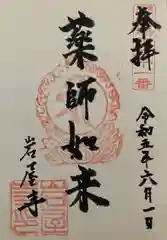 奉拝
一番
令和五年六月一日
薬師如来
岩屋寺